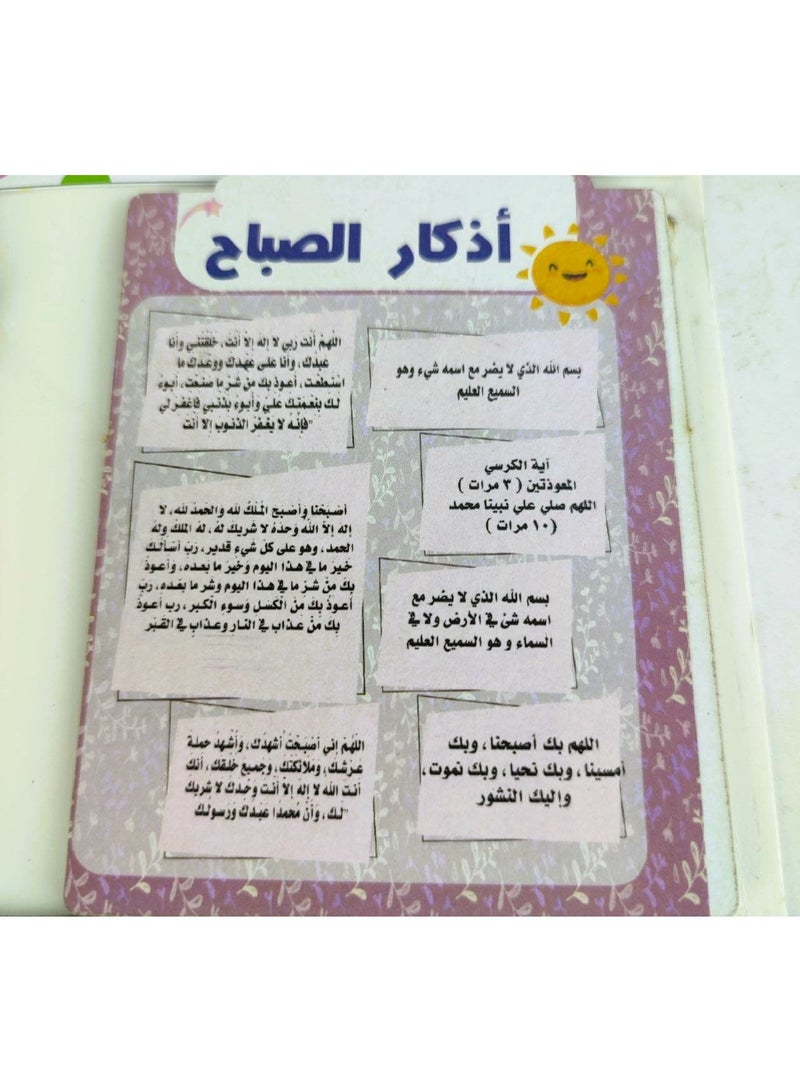 أذكار الصباح
بسم الله الذي لا يضر مع اسمه شيء وهو
السميع العليم
اللهم أنت ربي لا إله إلا أنت، خلقتني وأنا
عبدك، وأنا على عهدك ووعدك ما
استطعت، أعوذ بك من شر ما صنعت، أبوء
لك بنعمتك علي وأبوء بذنبي فاغفر لي
فإنه لا يغفر الذنوب إلا أنت"
آية الكرسي
المعوذتين ( ٣ مرات )
اللهم صلي علي نبينا محمد
(١٠ مرات )
أصبحنا وأصبح الملك لله والحمد لله، لا
إله إلا الله وحده لا شريك له، له الملك وله
الحمد، وهو على كل شيء قدير، رب أسألك
خير ما في هذا اليوم وخير ما بعده، وأعوذ
بك من شر ما في هذا اليوم وشر ما بعده، رب
أعوذ بك من الكسل وسوء الكبر، رب أعوذ
بك من عذاب في النار وعذاب في القبر
بسم الله الذي لا يضر مع
اسمه شئ في الأرض ولا في
السماء و هو السميع العليم
اللهم بك أصبحنا، وبك
أمسينا، وبك نحيا، وبك نموت،
وإليك النشور
اللهم إني أصبحت أشهدك، وأشهد حملة
عرشك، وملائكتك، وجميع خلقك، أنك
أنت الله لا إله إلا أنت وحدك لا شريك
لك، وأن محمدا عبدك ورسولك"